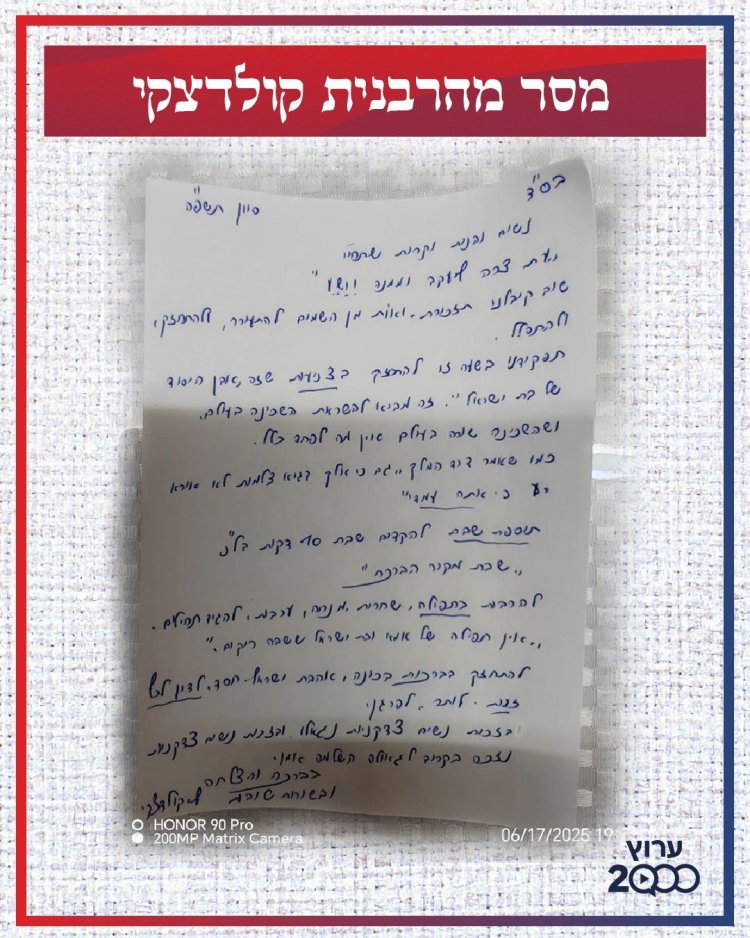 מסר מהרבנית קולדצקי
בס"ד
סיון תשפ"ה
נשים ובנות יקרות שתחי'
"ועת צרה ליעקב וממנה יוושע"
שוב קיבלנו תזכורת ואות מן השמים להתעורר, להתחזק,
ולהתפלל.
תפקידנו בשעה זו להתחזק בצניעות שזה, אבן היסוד
של בת ישראל". זה מביא להשראת השכינה בעולם.
ושהשכינה שורה בעולם אין מה לפחד כלל.
כמו שאמר דוד המלך "גם כי אלך בגיא צלמות לא אירא
רע כי אתה עמדי"
תוספת שבת להקדים שבת 40 דקות בל"נ
"שבת מקור הברכה"
להרבות בתפילה, שחרית, מנחה, ערבית, להגיד תהילים.
"אין תפילה של אמא ובת ישראל ששבה ריקם."
להתחזק בברכות בכוונה, אהבת ישראל חסד, לדון לכף
זכות. לוותר, לפרגן.
בזכות נשים צדקניות נגאלו ובזכות נשים צדקניות
נזכה בקרוב לגאולה השלמה אמן.
בברכה והצלחה
ובשורות טובות קולדצקי
HONOR 90 Pro
200MP Matrix Camera
06/17/2025 19
ערוץ
2000